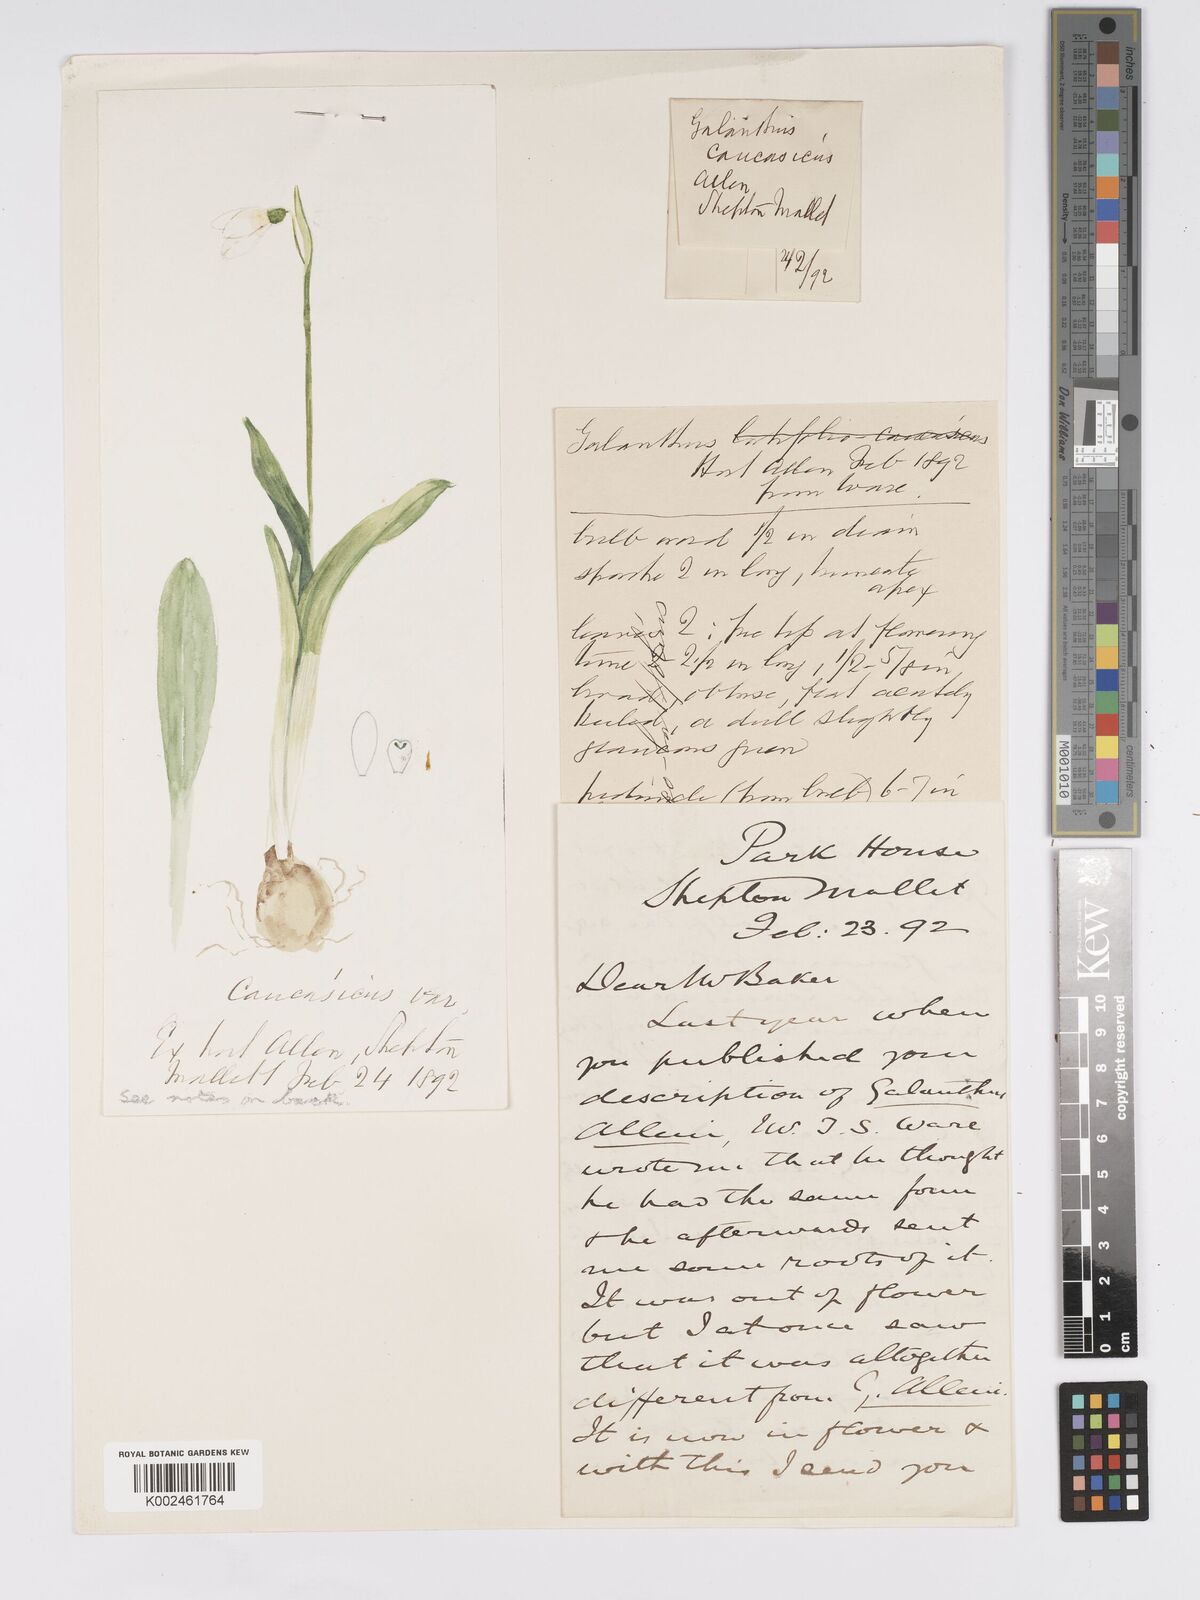 Galanthus
caucasicus
Allen
Shepton Mallet
242/92
Caucasicus var.
Ex hort Allen, Shepton
Mallett Feb 24 1892
See notes on back.
Galanthus latifolio-caucasicus
Hort Allen Feb 1892
from Ware.
bulb ovoid 1/2 in diam
spathe 2 in long, truncate
apex
leaves 2; free tip at flowering
time 2-2 1/2 in long, 1/2-5/8 in
broad, obtuse, flat acutely
keeled, a dull slightly
glaucous green
peduncle (from bulb) 6-7 in
Park House
Shepton Mallet
Feb: 23. 92
Dear Mr Baker
Last year when
you published your
description of Galanthus
Allenii, Mr. T. S. Ware
wrote me that he thought
he had the same form
& he afterwards sent
me some roots of it.
It was out of flower
but I at once saw
that it was altogether
different from G. Allenii.
It is now in flower &
with this I send you
ROYAL BOTANIC GARDENS KEW
K002461764
inches
centimeters
Don Williams
M001010
Kew
Royal Botanic Gardens
copyright reserved
0 1 2 3 4 5 6 7 8 9 10
cm